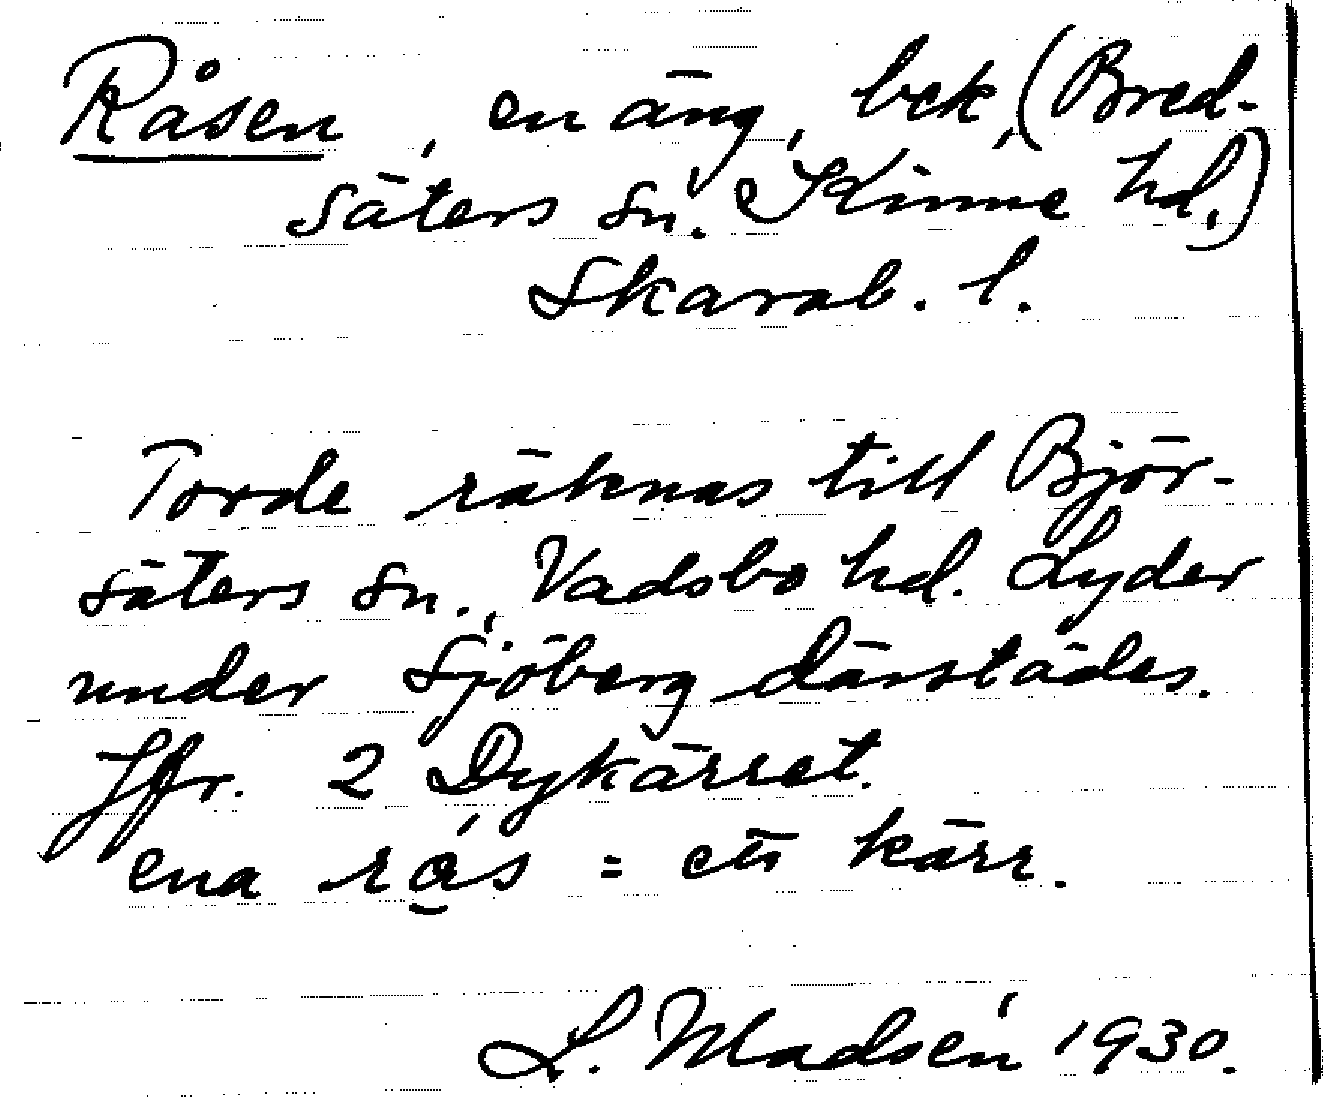 Råsen, en äng, bek, (Bred-
säters sn. Kinne hd.)
Skarab. l.
Torde räknas till Björ-
säters sn., Vadsbo hd. Lyder
under Sjöberg därstädes.
Jfr. 2 Dykärret.
ena rás = ett kärr.
L. Madsén 1930.